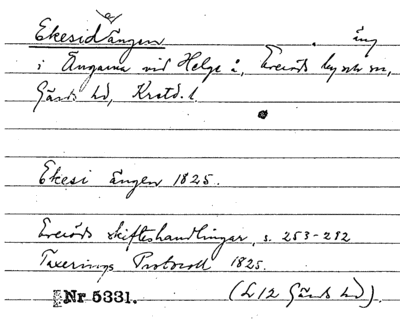 Ekesidaängen äng
i Ängarna vid Helge å, Everöds by och sn,
Gärds hd, Krstd. l.
Ekesi ängen 1825.
Everöds skifteshandlingar, s. 253-292
Taxerings Protocoll 1825.
Nr 5331. (L 12 Gärds hd).